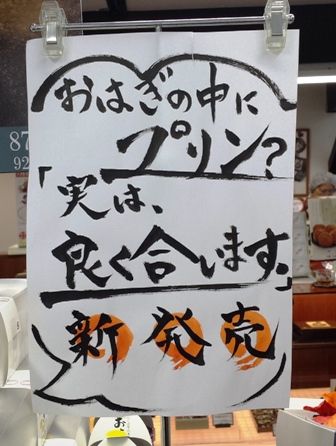 おはぎの中に
プリン?
「実は、
良く合います。」
新発売
87
92